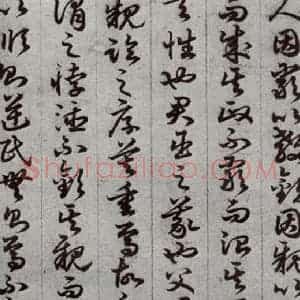 人因嚴以教敬因親以
而成其政不嚴而治其
天性也君臣之義也父
親臨之厚莫重焉故
謂之悖德不敬其親而
以順則逆民無則焉不
Shufaziliao.com